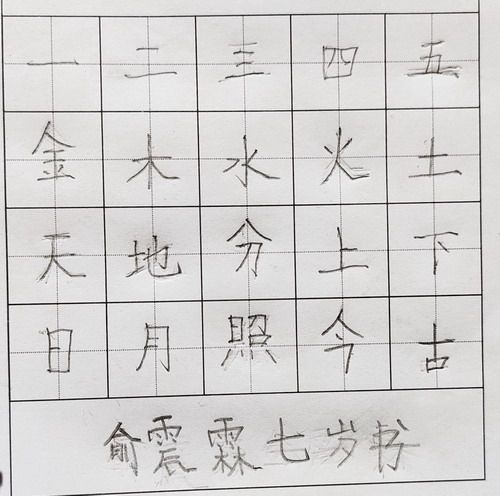 一二三四五
金木水火土
天地分上下
日月照今古
俞震霖七岁书